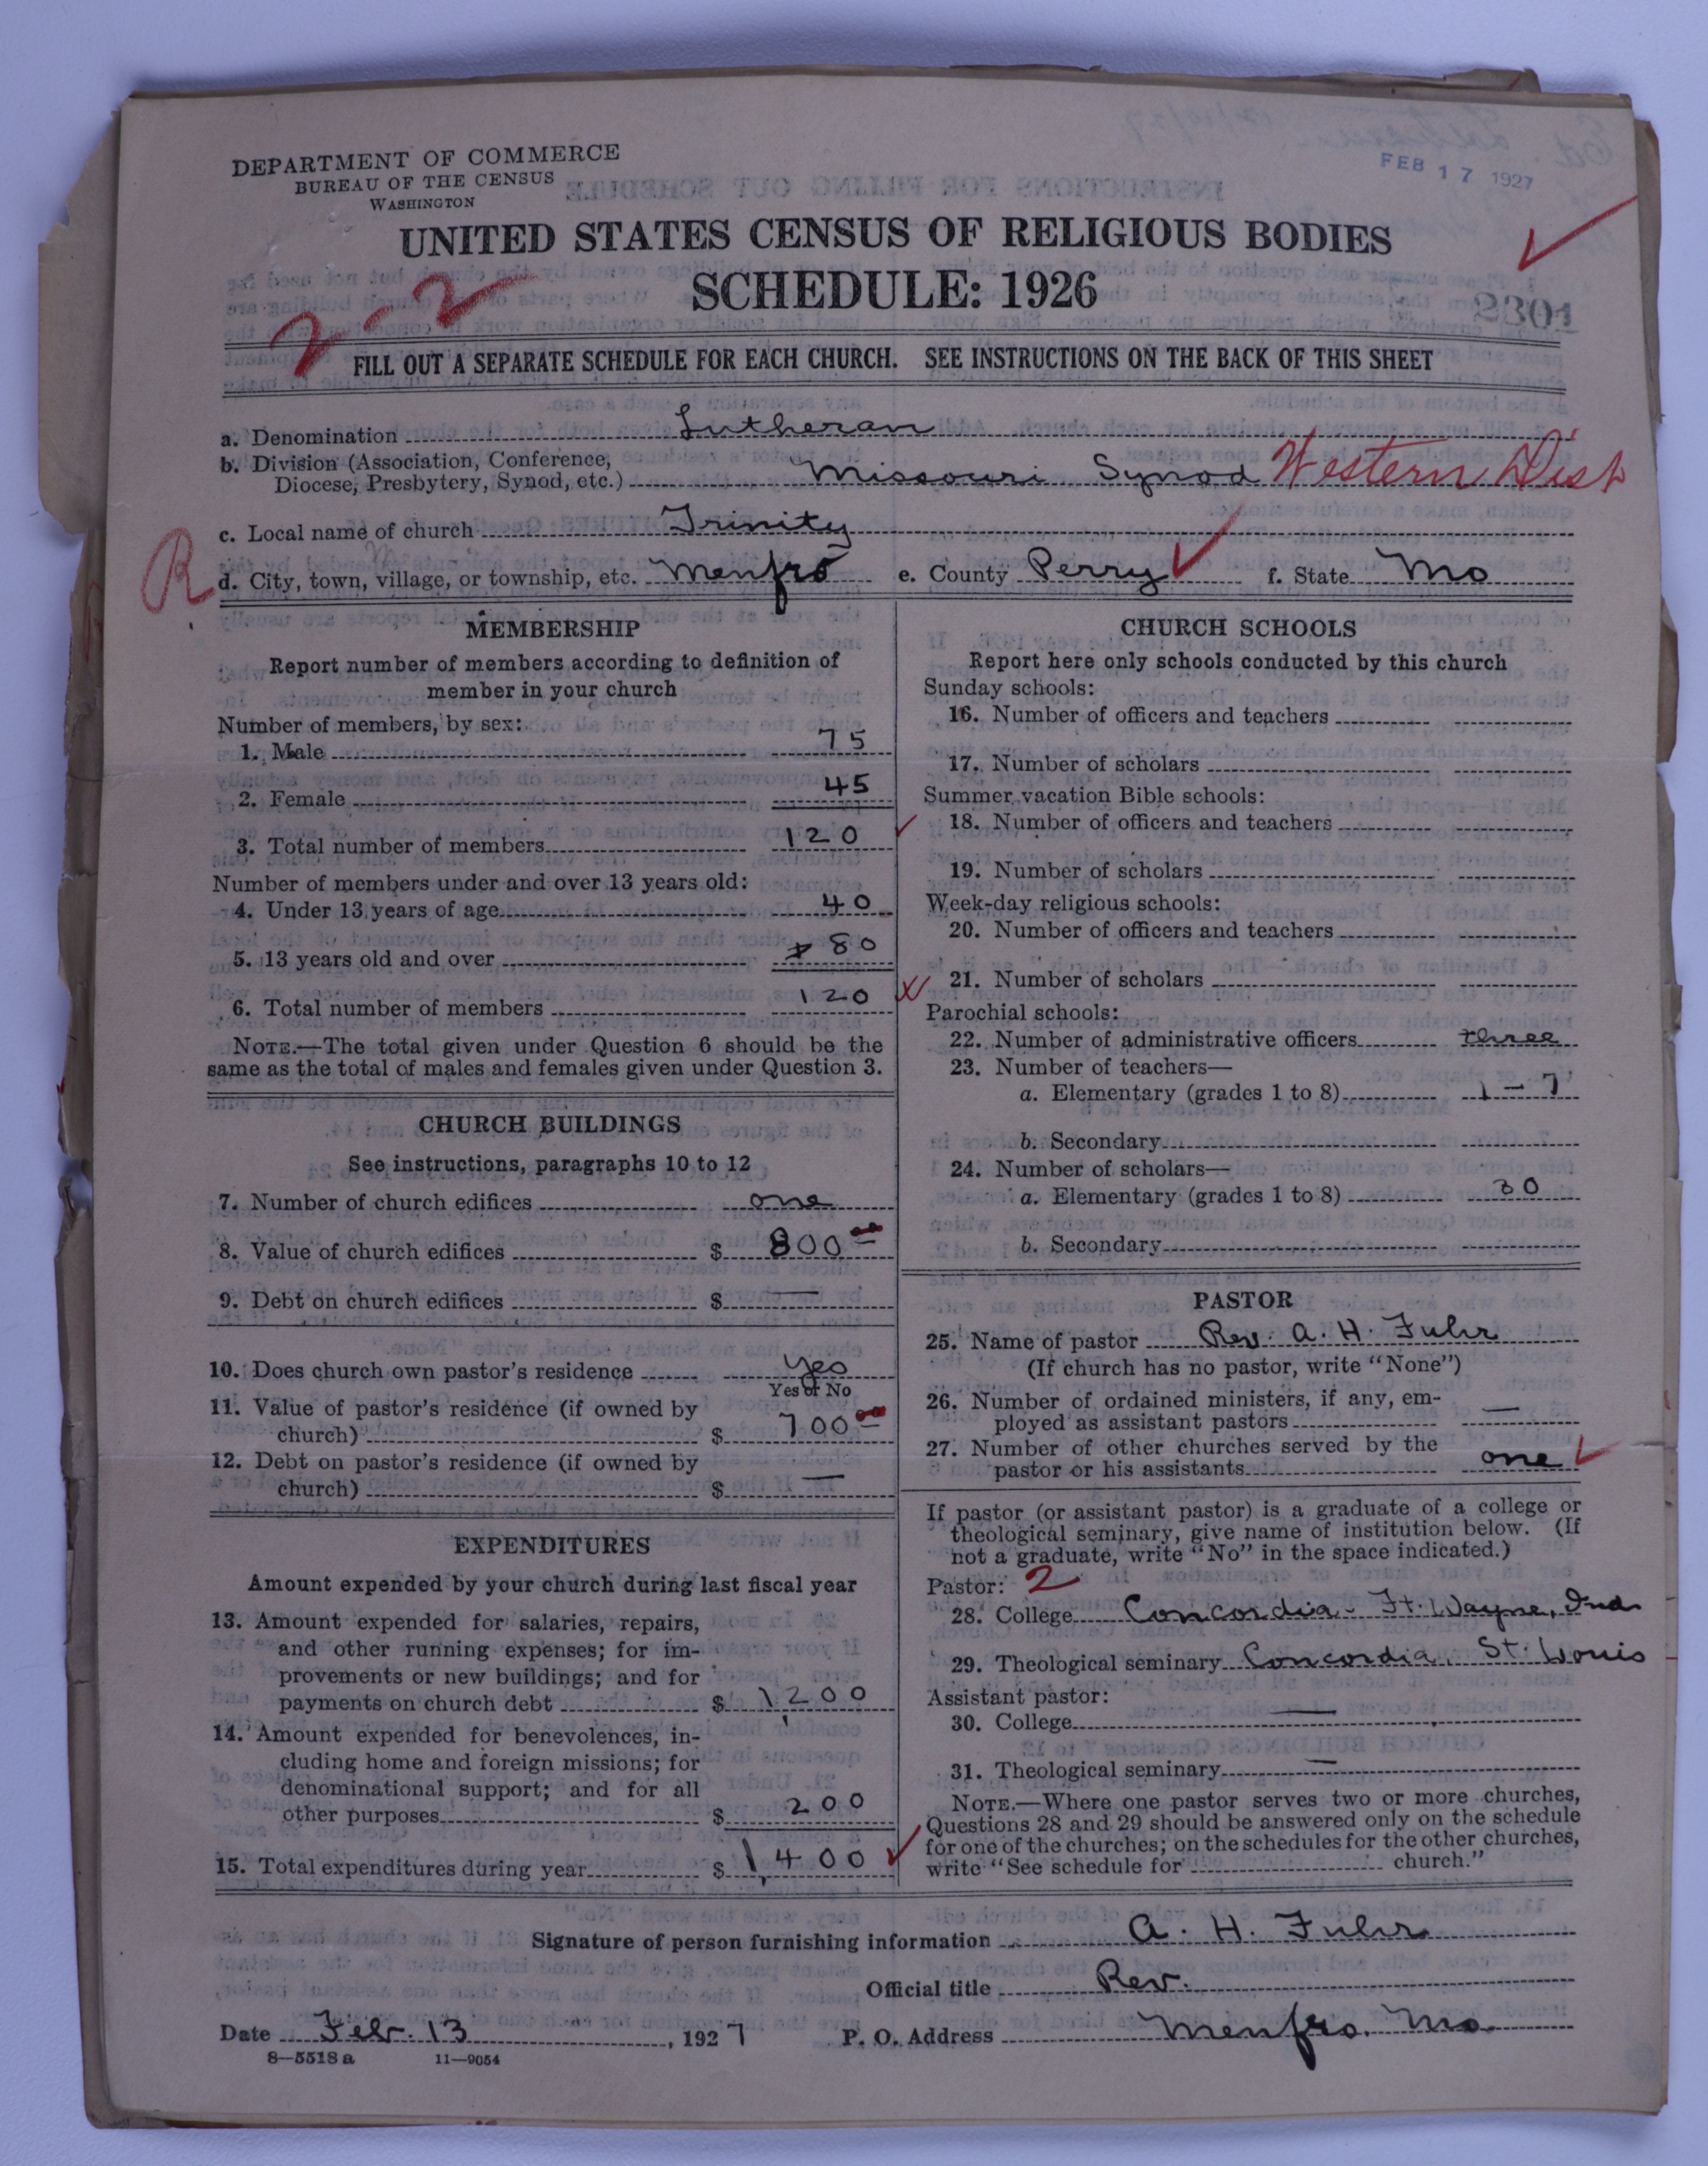 DEPARTMENT OF COMMERCE
BUREAU OF THE CENSUS
WASHINGTON
FEB 17 1927
UNITED STATES CENSUS OF RELIGIOUS BODIES
SCHEDULE: 1926
2-2
2301
FILL OUT A SEPARATE SCHEDULE FOR EACH CHURCH. SEE INSTRUCTIONS ON THE BACK OF THIS SHEET
a. Denomination Lutheran
b. Division (Association, Conference,
Diocese, Presbytery, Synod, etc.) Missouri Synod Western Dist
c. Local name of church Trinity
R
d. City, town, village, or township, etc. Menfro e. County Perry f. State Mo
MEMBERSHIP
Report number of members according to definition of
member in your church
Number of members, by sex:
1. Male 75
2. Female 45
3. Total number of members 120
Number of members under and over 13 years old:
4. Under 13 years of age 40
5. 13 years old and over 80
6. Total number of members 120
NOTE.—The total given under Question 6 should be the
same as the total of males and females given under Question 3.
CHURCH BUILDINGS
See instructions, paragraphs 10 to 12
7. Number of church edifices one
8. Value of church edifices $ 800 00
9. Debt on church edifices $ —
10. Does church own pastor's residence yes
Yes or No
11. Value of pastor's residence (if owned by
church) $ 700 00
12. Debt on pastor's residence (if owned by
church) $ —
EXPENDITURES
Amount expended by your church during last fiscal year
13. Amount expended for salaries, repairs,
and other running expenses; for im-
provements or new buildings; and for
payments on church debt $ 1,200
14. Amount expended for benevolences, in-
cluding home and foreign missions; for
denominational support; and for all
other purposes $ 200
15. Total expenditures during year $ 1,400
CHURCH SCHOOLS
Report here only schools conducted by this church
Sunday schools:
16. Number of officers and teachers
17. Number of scholars
Summer vacation Bible schools:
18. Number of officers and teachers
19. Number of scholars
Week-day religious schools:
20. Number of officers and teachers
21. Number of scholars
Parochial schools:
22. Number of administrative officers three
23. Number of teachers—
a. Elementary (grades 1 to 8) 1 – 7
b. Secondary
24. Number of scholars—
a. Elementary (grades 1 to 8) 30
b. Secondary
PASTOR
25. Name of pastor Rev. A. H. Fuhr
(If church has no pastor, write "None")
26. Number of ordained ministers, if any, em-
ployed as assistant pastors —
27. Number of other churches served by the
pastor or his assistants one
If pastor (or assistant pastor) is a graduate of a college or
theological seminary, give name of institution below. (If
not a graduate, write "No" in the space indicated.)
Pastor: 2
28. College Concordia - Ft. Wayne, Ind
29. Theological seminary Concordia. St. Louis
Assistant pastor:
30. College —
31. Theological seminary —
NOTE.—Where one pastor serves two or more churches,
Questions 28 and 29 should be answered only on the schedule
for one of the churches; on the schedules for the other churches,
write "See schedule for church."
Signature of person furnishing information A. H. Fuhr
Official title Rev.
Date Feb. 13, 1927 P. O. Address Menfro. Mo.
8—5518 a 11—9054